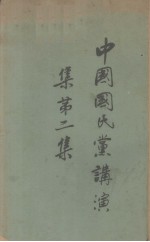 中國國民黨講演
集第二集